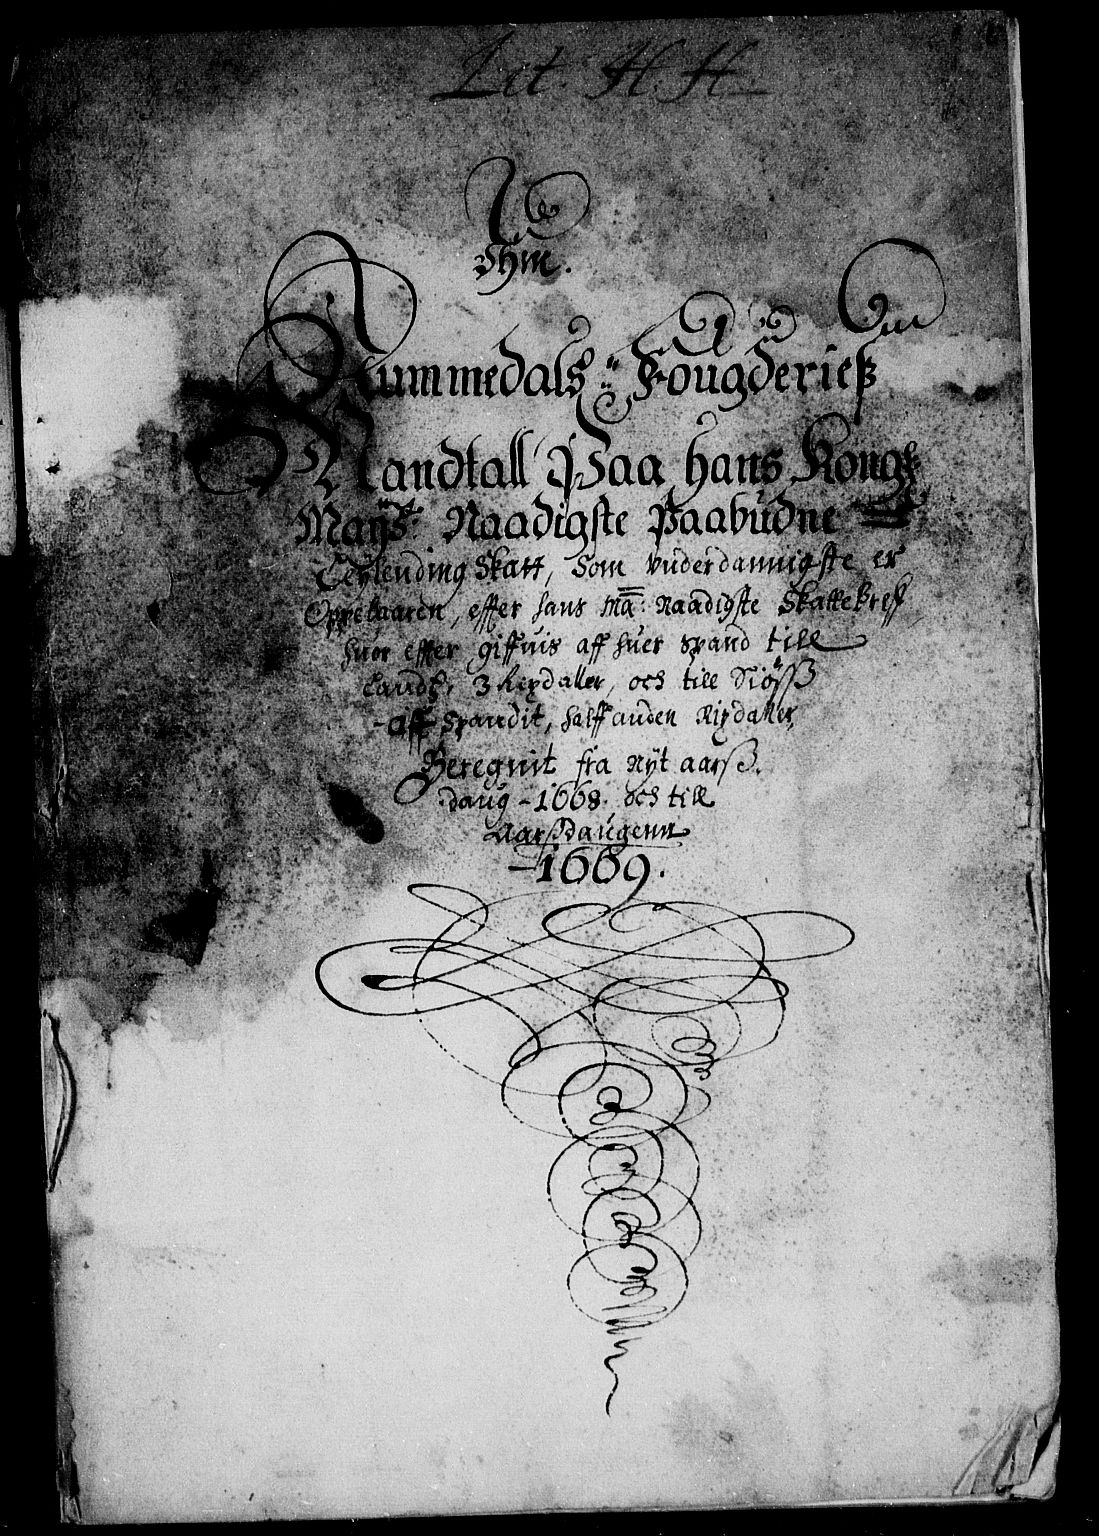 Lit. H. H.
Ihm.
Nummedals Fougderieß
Mandtall Paa hans Kong:
Mayst: Naadigste Paabudne
Leylending Skatt, Som vnderdannigste er
Oppebaaren, effter hans Ma: Naadigste Skattebref
huor effter giffuis aff huer spand till
Landz, 3 Rixdaller, och till Siøß
aff Spandit, halff anden Rixdaller,
Beregnit fra Nyt aarß
daug - 1668. och till
Aarßdaugenn
- 1669.